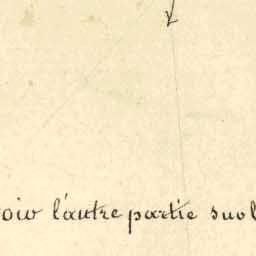 oir l'autre partie sur l